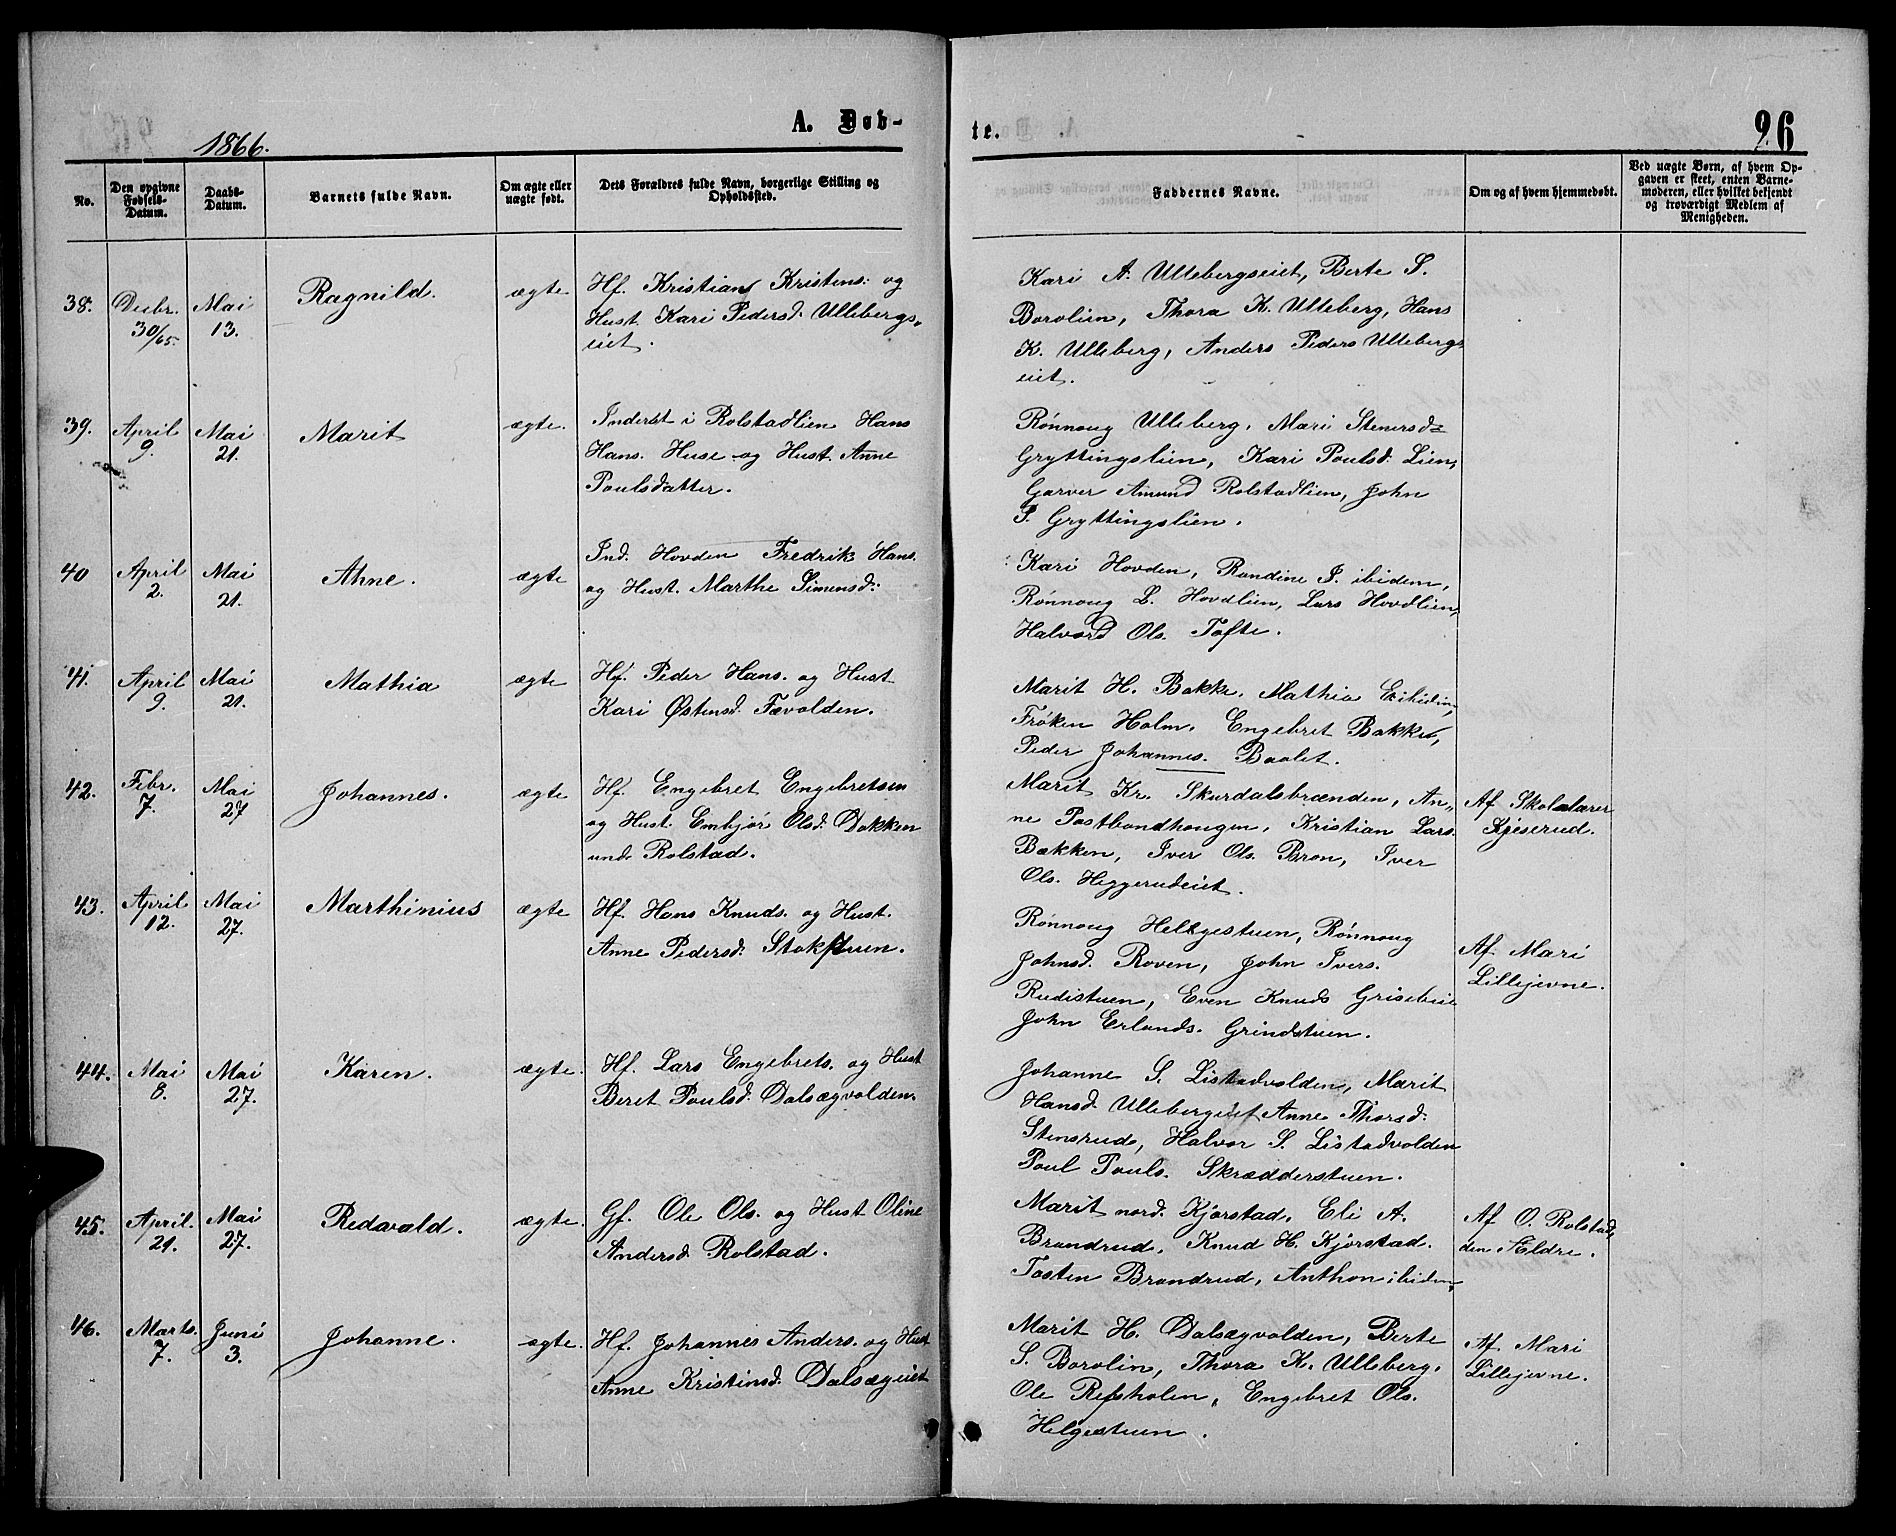 1866.
A. Døb-
te.
26
No.
Den opgivne Fødsels-Datum.
Daabs-Datum.
Barnets fulde Navn.
Om ægte eller uægte født.
Dets Forældres fulde Navn, borgerlige Stilling og Opholdssted.
Faddernes Navne.
Om og af hvem hjemmedøbt.
Ved uægte Børn, af hvem Opgaven er skeet, enten Barnemoderen, eller hvilket bekjendt og troværdigt Medlem af Menigheden.
38. Decbr. 30/65. Mai 13. Ragnild. ægte
Hf. Kristian Kristens: og
Hust. Kari Pedersd. Ullebergs-
eiet.
Kari A. Ullebergseiet, Berte S.
Borolien, Thora K. Ulleberg, Hans
K. Ulleberg, Anders Peders Ullebergs
eiet.
39. April 9. Mai 21. Marit ægte.
Inderst i Rolstadlien Hans
Hans. Huse og Hust. Anne
Poulsdatter.
Rønnoug Ulleberg, Mari Stenersd=
Gryttingslien, Kari Poulsd. Lien,
Garver Amund Rolstadlien, John
P. Gryttingslien.
40 April 2. Mai 21. Ahne. ægte
Ind. Hovden Fredrik Hans.
og Hust. Marthe Simensd:
Kari Hovden, Randine J. ibidem,
Rønnoug L. Hovdlien, Lars Hovdlien,
Halvord Ols. Tofte.
41. April 9. Mai 21. Mathia ægte
Hf. Peder Hans. og Hust
Kari Østensd. Fævolden.
Marit H. Bakke, Mathia
Frøken Holm, Engebret Bakke,
Peder Johannes. Baalet.
42. Febr. 7. Mai 27 Johannes. ægte
Hf. Engebret Engebretsen
og Hust. Embjør Olsd. Dokken
unde Rolstad.
Marit Kr. Skurdalsbrænden, An-
ne Postbondhougen, Kristian Lars.
Bækken, Iver Ols. Bron, Iver
Ols. Heggerudeiet.
Af Skolelærer
Kjeserud.
43. April 12. Mai 27. Marthinius ægte
Hf. Hans Knuds. og Hust.
Anne Pedersd. Stokstuen.
Rønnoug Helegestuen, Rønnoug
Johnsd. Roven, John Ivers.
Rudistuen, Even Knuds
John Erlands. Grindstuen.
Af Mari
Lillejevne.
44. Mai 8. Mai 27. Karen. ægte.
Hf. Lars Engebrets. og Hust
Beret Poulsd. Dalsægvolden.
Johanne S. Listadvolden, Marit
Hansd. Ullebergeiet Anne Thorsd.
Stensrud, Halvor S. Listadvolden
Poul Pouls. Skrædderstuen.
45. April. 21. Mai 27. Redavald. ægte.
Gf. Ole Ols. og Hust Oline
Andersd. Rolstad.
Marit nord. Kjorstad, Eli A.
Brandrud, Knud H. Kjorstad.
Tosten Brandrud, Anthon ibidem,
Af O. Rolstad,
den Ældre.
46. Marts. 7. Juni 3. Johanne. ægte.
Hf. Johannes Anders. og Hust
Anne Kristinsd. Dalsægeiet
Marit H. Dalsægvolden, Berte
S. Borolin, Thora K. Ulleberg.
Ole Refsholen, Engebret Ols.
Helgestuen.
Af Mari
Lillejevne.